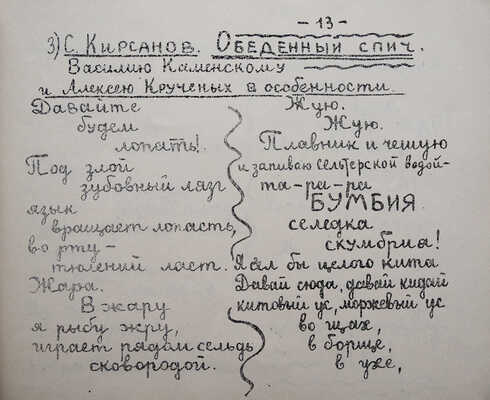 – 13 –
3) С. Кирсанов. Обеденный спич.
Василию Каменскому
и Алексею Крученых в особенности.
Давайте
будем
лопать!
Под злой
зубовный лязг
язык
вращает лопасть,
во рту –
тюлений ласт.
Жара.
В жару
я рыбу жру,
играет рядом сельдь
сковородой.
Жую.
Жую.
Плавник и чешую
и запиваю сельтерской водой–
та-ра-ра
БУМБИЯ
селедка
скумбрия!
Я ел бы целого кита
Давай сюда, давай кидай
китовый ус, моржевый ус
во щах,
в борще,
в ухе,